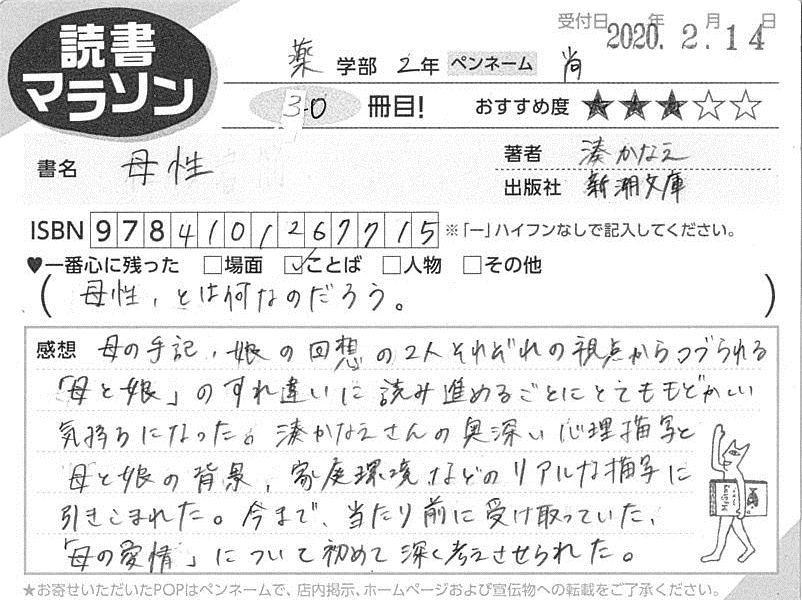 受付日 2020年 2月14日
読書
マラソン
薬 学部 2年 ペンネーム 尚
30 冊目! おすすめ度 ★★★☆☆
書名 母性
著者 湊かなえ
出版社 新潮文庫
ISBN 9784101267715 ※「ー」ハイフンなしで記入してください。
♥一番心に残った □場面 ☑ことば □人物 □その他
(母性、とは何なのだろう。)
感想 母の手記、娘の回想の2人それぞれの視点からつづられる
「母と娘」のすれ違いに読み進めるごとにとてももどかしい
気持ちになった。湊かなえさんの奥深い心理描写と
母と娘の背景、家庭環境などのリアルな描写に
引きこまれた。今まで、当たり前に受け取っていた、
「母の愛情」について初めて深く考えさせられた。
★お寄せいただいたPOPはペンネームで、店内掲示、ホームページおよび宣伝物への転載をご了承ください。